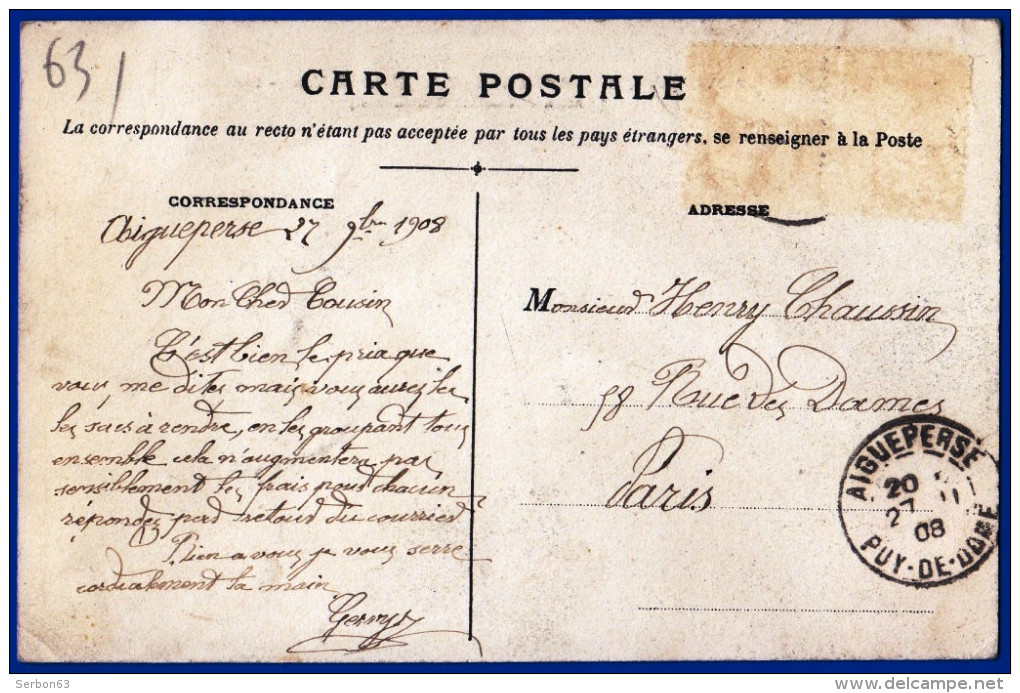 63
CARTE POSTALE
La correspondance au recto n'étant pas acceptée par tous les pays étrangers, se renseigner à la Poste
CORRESPONDANCE
Aigueperse 27 9bre 1908
Mon Cher Cousin
C'est bien le prix que
vous me dites mais vous aurez les
les sacs à rendre, en les groupant tous
ensemble cela n'augmentera pas
sensiblement les frais pour chacun
répondez par retour du courrier
Bien a vous je vous serre
cordialement la main
ADRESSE
Monsieur Henry Chaussin
58 Rue des Dames
Paris
AIGUEPERSE
20
27 11
08
PUY-DE-DOME
Serbon63
delcampe.net